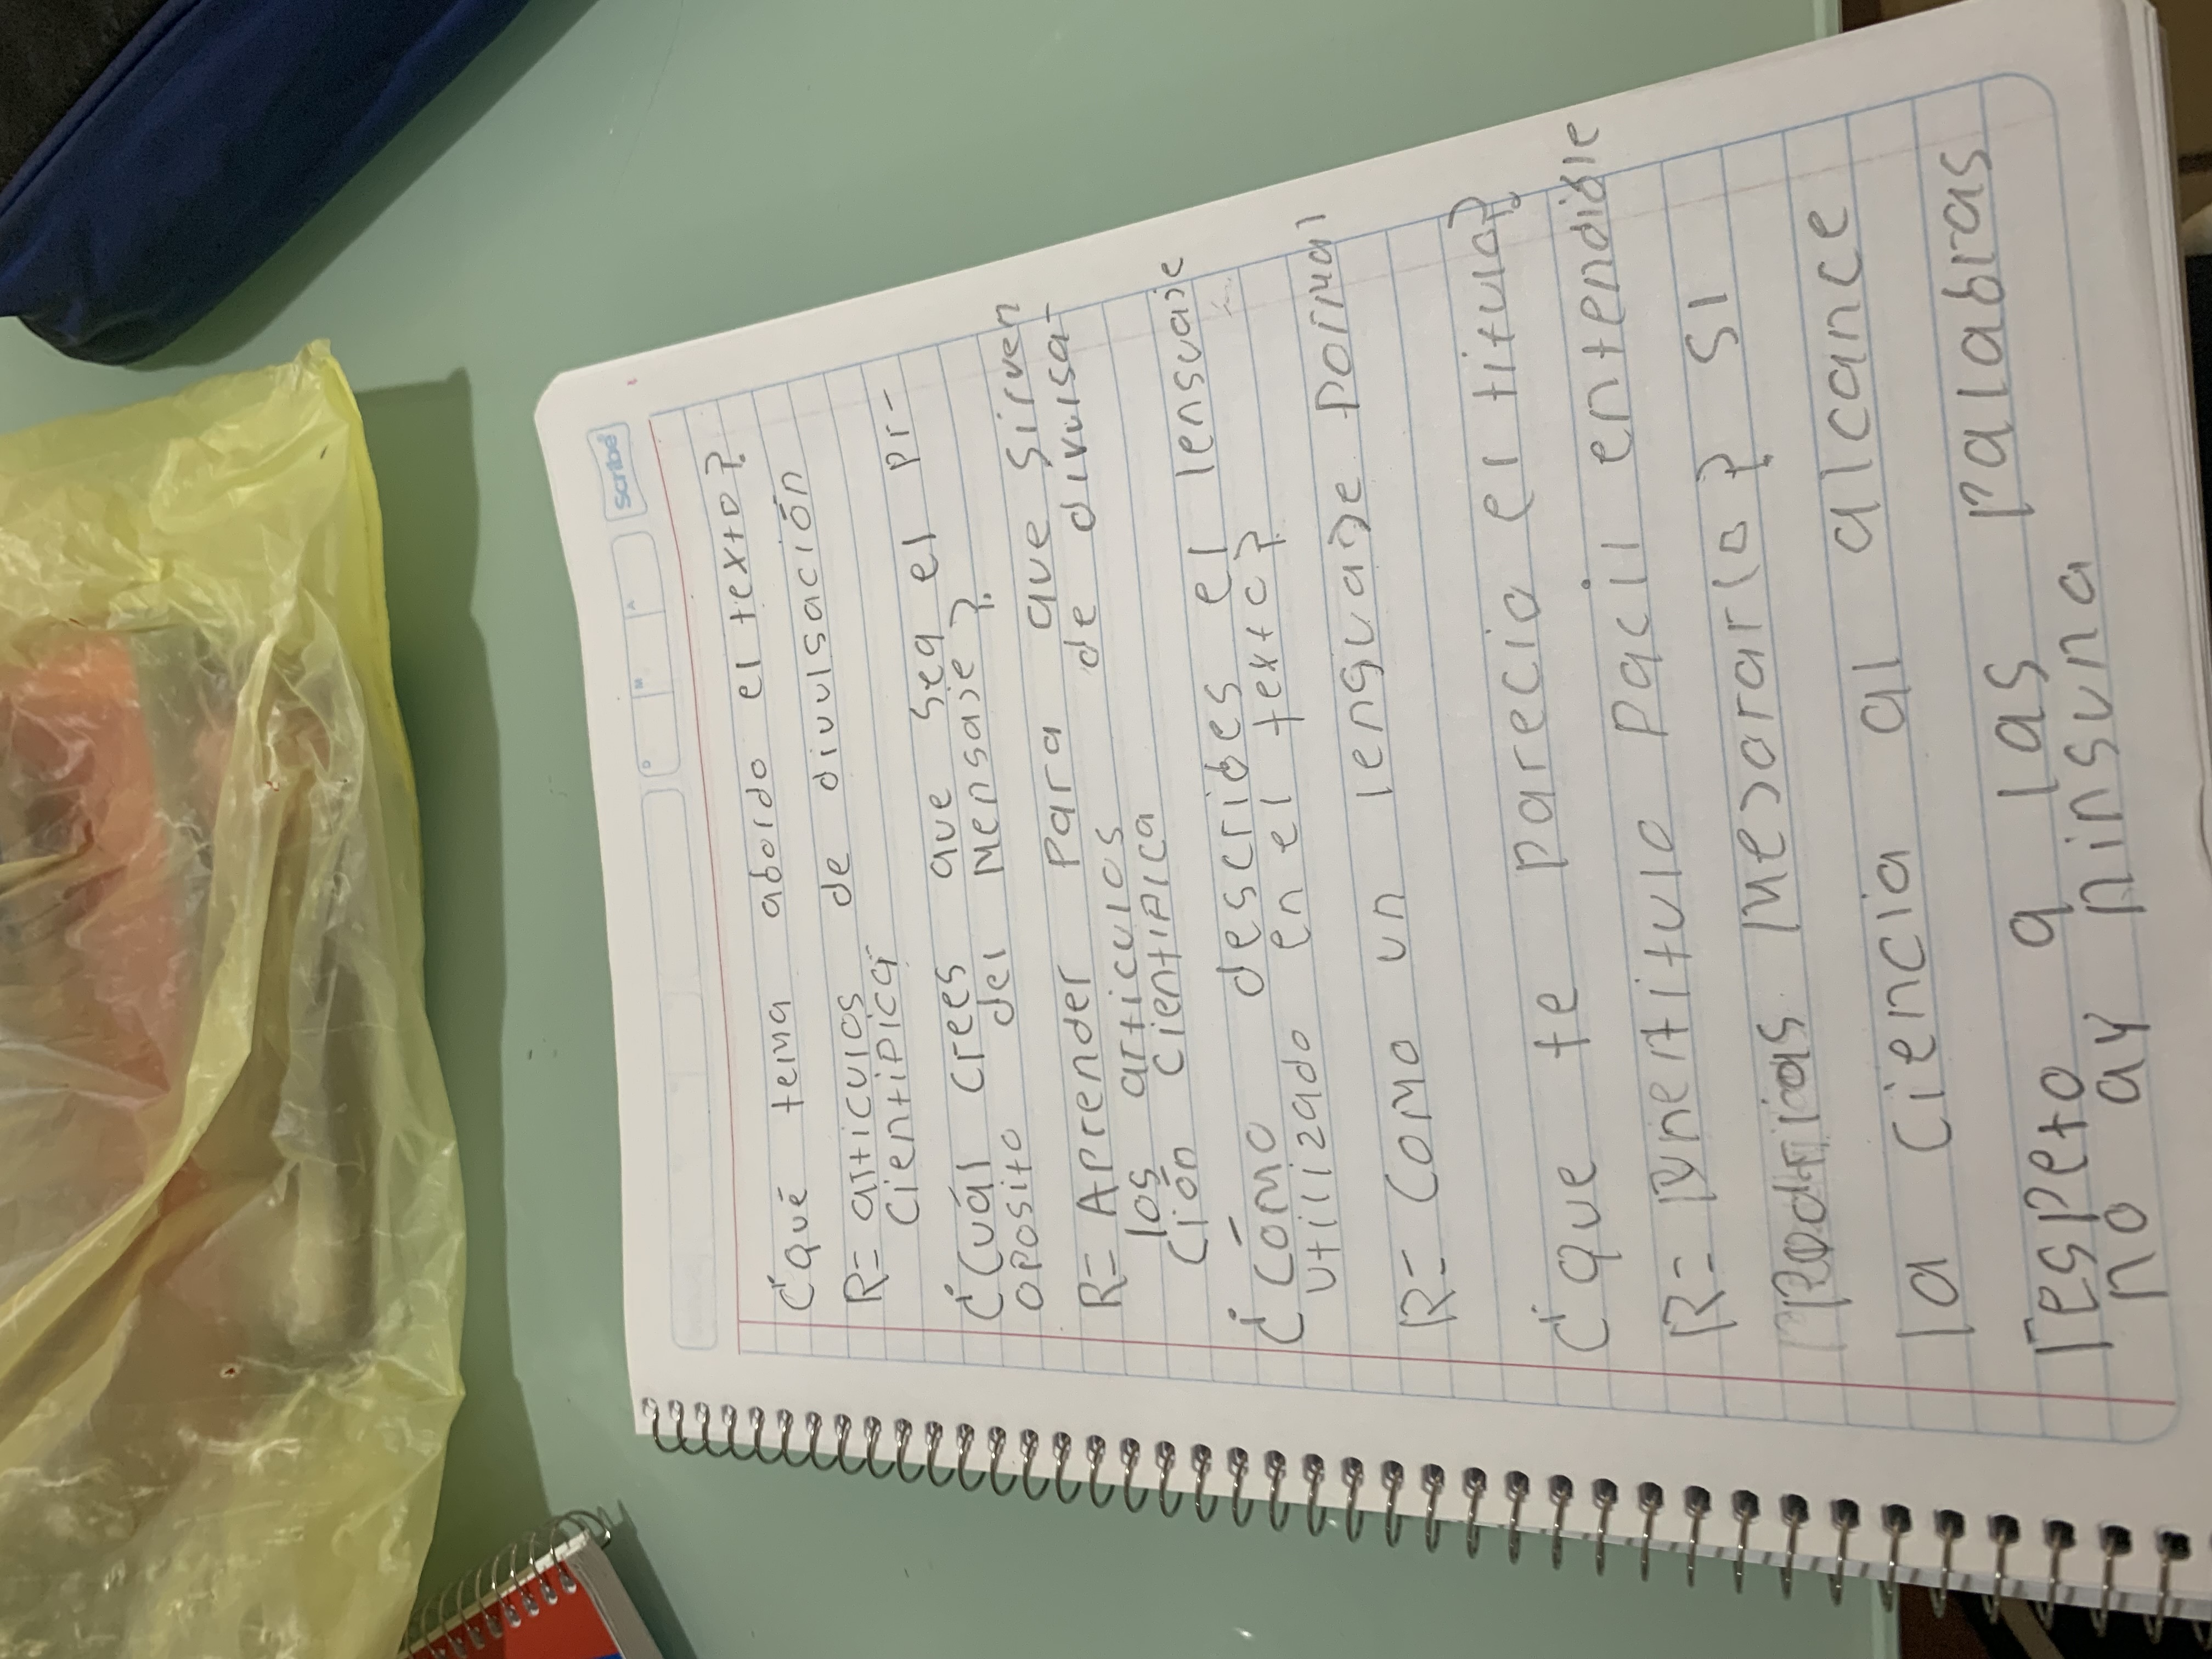 scribe
D M A
¿qué tema abordo el texto?
R= articulos de divulgación
cientifica
¿Cuál crees que sea el pr-
oposito del mensaje?
R= Aprender Para que sirven
los articulos de divulga-
ción cientifica
¿Cómo describes el lenguaje
utilizado en el texto?
R= Como un lenguaje formal
¿que te parecio el titulo?
R= Buen titulo facil entendible
Podrias mejorarlo? SI
la ciencia al alcance
respeto a las palabras
no ay ninguna